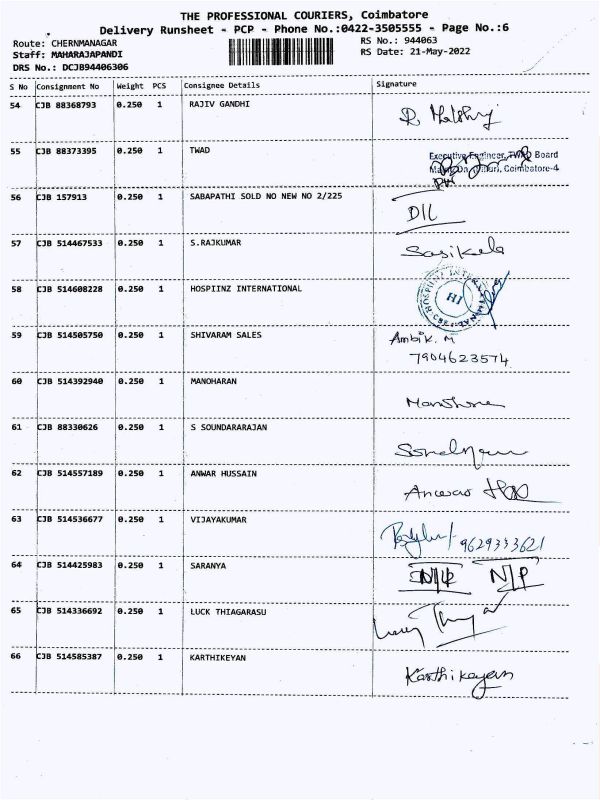 THE PROFESSIONAL COURIERS, Coimbatore
Delivery Runsheet - PCP - Phone No.:0422-3505555 - Page No.:6
Route: CHERNMANAGAR RS No.: 944063
Staff: MAHARAJAPANDI RS Date: 21-May-2022
DRS No.: DCJB94406306
S No Consignment No Weight PCS Consignee Details Signature
54 CJB 88368793 0.250 1 RAJIV GANDHI
55 CJB 88373395 0.250 1 TWAD
Executive Engineer, TWAD Board
Coimbatore-4
56 CJB 157913 0.250 1 SABAPATHI SOLD NO NEW NO 2/225
57 CJB 514467533 0.250 1 S.RAJKUMAR Sasikala
58 CJB 514608228 0.250 1 HOSPIINZ INTERNATIONAL
HI
59 CJB 514505750 0.250 1 SHIVARAM SALES Ambik. M
7904623574
60 CJB 514392940 0.250 1 MANOHARAN
61 CJB 88330626 0.250 1 S SOUNDARARAJAN
62 CJB 514557189 0.250 1 ANWAR HUSSAIN Anwar
63 CJB 514536677 0.250 1 VIJAYAKUMAR 9629333621
64 CJB 514425983 0.250 1 SARANYA N/P
65 CJB 514336692 0.250 1 LUCK THIAGARASU
66 CJB 514585387 0.250 1 KARTHIKEYAN Karthikeyan